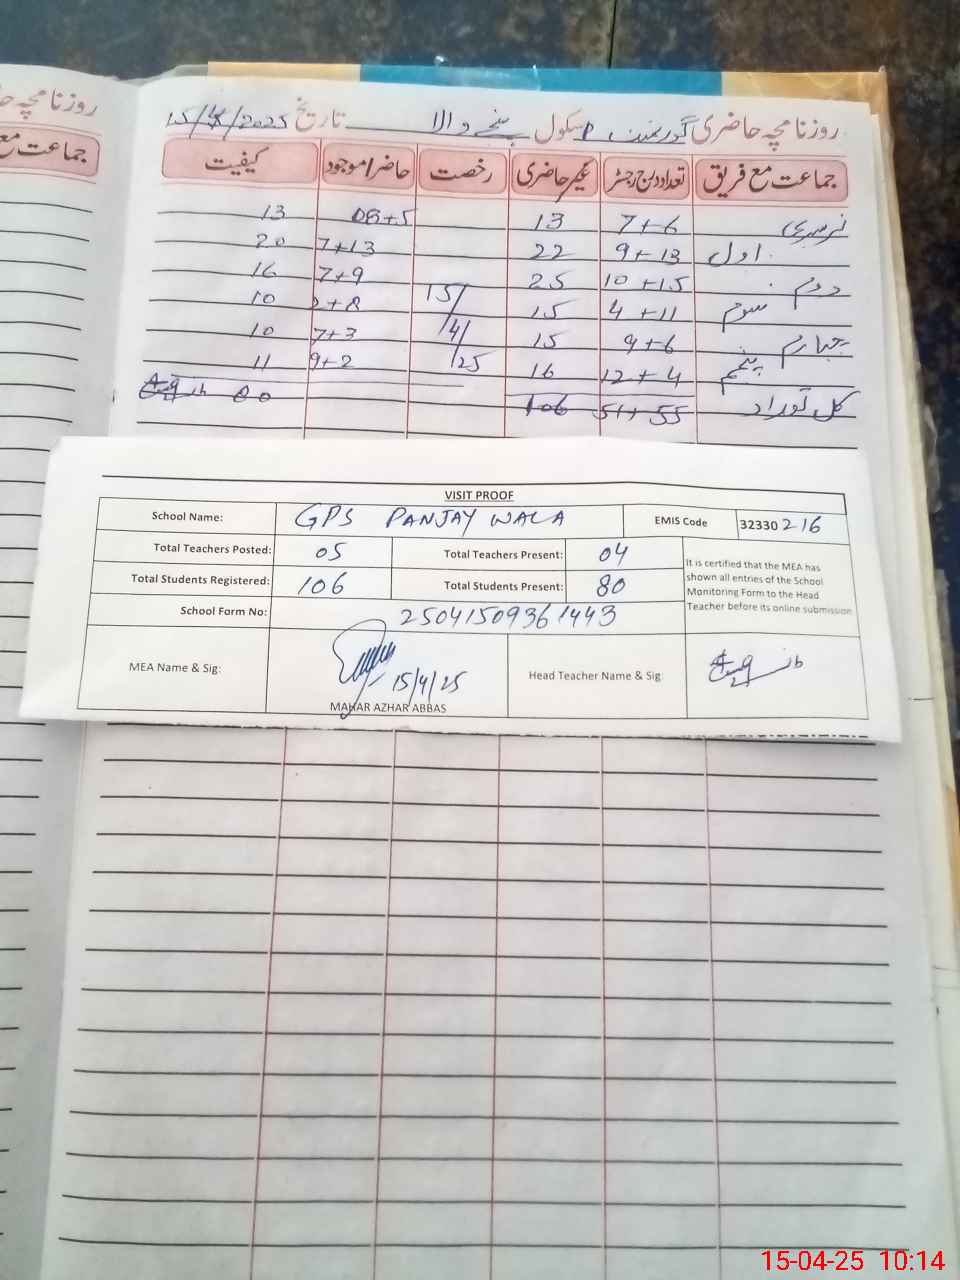 روزنامچہ حاضری گورنمنٹ P سکول پنجے والا تاریخ 15/4/2025
جماعت مع فریق تعداد درج رجسٹر غیر حاضری رخصت حاضر/موجود کیفیت
نرسری 7+6 13 08+5 13
اول 9+13 22 7+13 20
دوم 10+15 25 7+9 16
سوم 4+11 15 15/ 2+8 10
چہارم 9+6 15 4/ 7+3 10
پنجم 12+4 16 /25 9+2 11
کل تعداد 51+55 106 80
روزنامچہ
جماعت مع
VISIT PROOF
School Name: GPS PANJAY WALA EMIS Code 32330216
Total Teachers Posted: 05 Total Teachers Present: 04
Total Students Registered: 106 Total Students Present: 80
It is certified that the MEA has
shown all entries of the School
Monitoring Form to the Head
Teacher before its online submission
School Form No: 25041509361443
MEA Name & Sig: 15/4/25
MAHAR AZHAR ABBAS
Head Teacher Name & Sig:
15-04-25 10:14